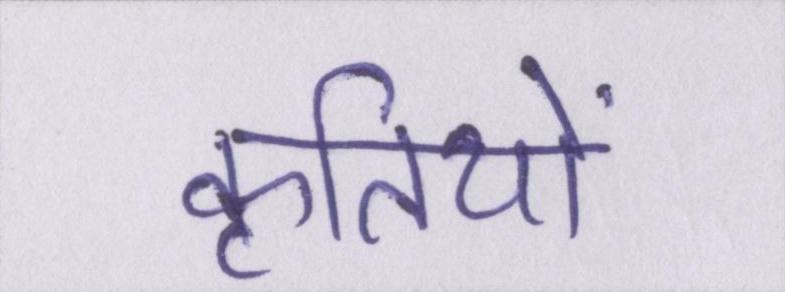 कृतियों